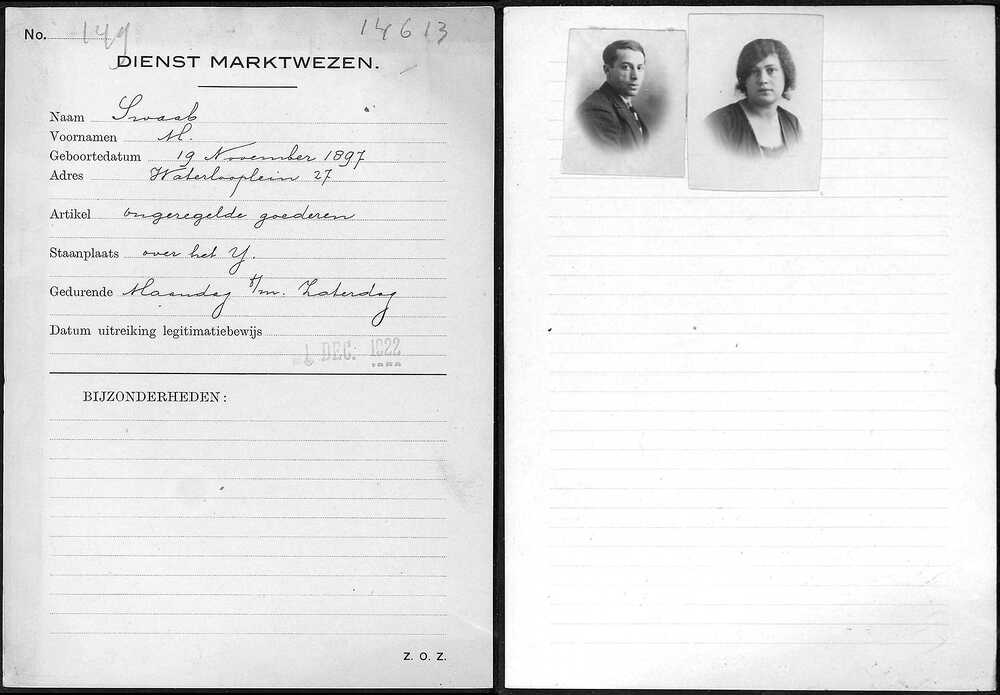 No. 149 14613
DIENST MARKTWEZEN.
Naam Swaab
Voornamen M.
Geboortedatum 19 November 1897
Adres Waterlooplein 27
Artikel ongeregelde goederen
Staanplaats over het Y.
Gedurende Maandag t/m. Zaterdag
Datum uitreiking legitimatiebewijs
DEC. 1922
BIJZONDERHEDEN:
Z. O. Z.